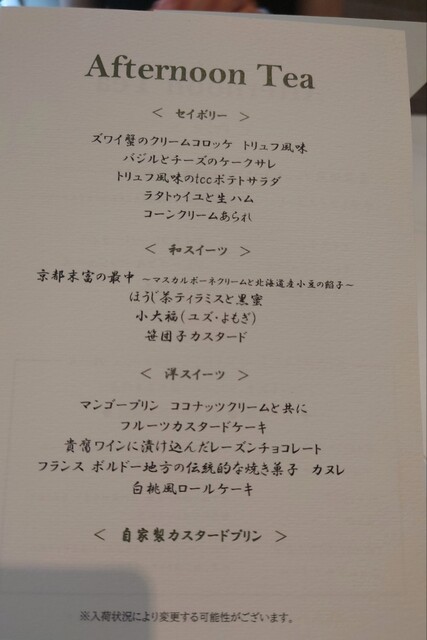 Afternoon Tea
< セイボリー >
ズワイ蟹のクリームコロッケ トリュフ風味
バジルとチーズのケークサレ
トリュフ風味のtccポテトサラダ
ラタトゥイユと生ハム
コーンクリームあられ
< 和スイーツ >
京都末富の最中 ～マスカルポーネクリームと北海道産小豆の餡子～
ほうじ茶ティラミスと黒蜜
小大福(ユズ・よもぎ)
笹団子カスタード
< 洋スイーツ >
マンゴープリン ココナッツクリームと共に
フルーツカスタードケーキ
貴腐ワインに漬け込んだレーズンチョコレート
フランス ボルドー地方の伝統的な焼き菓子 カヌレ
白桃風ロールケーキ
< 自家製カスタードプリン >
※入荷状況により変更する可能性がございます。